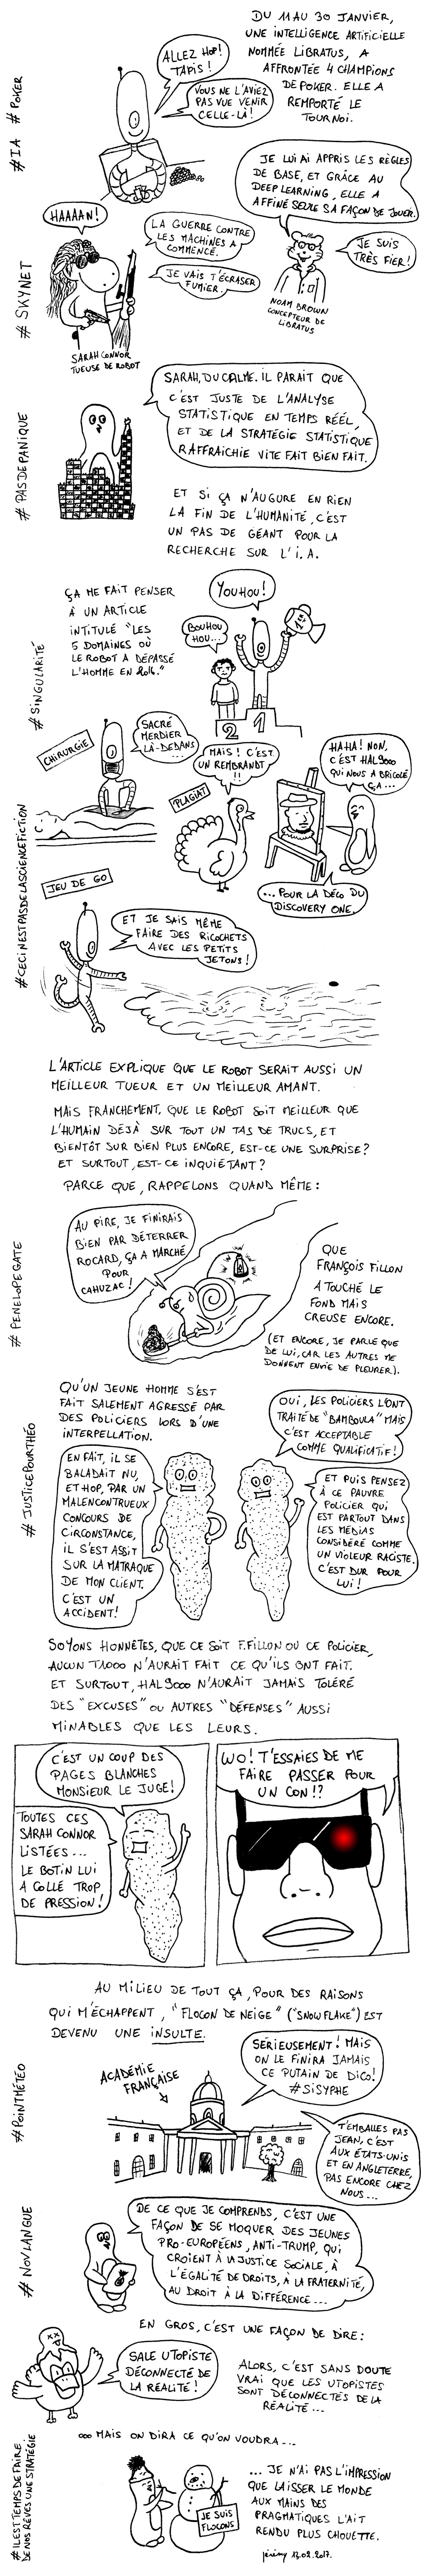 DU 11 AU 30 JANVIER,
UNE INTELLIGENCE ARTIFICIELLE
NOMMÉE LIBRATUS, A
AFFRONTÉE 4 CHAMPIONS
DE POKER. ELLE A
REMPORTÉ LE
TOURNOI.
#IA #POKER
ALLEZ HOP!
TAPIS!
VOUS NE L'AVIEZ
PAS VUE VENIR
CELLE-LÀ!
JE LUI AI APPRIS LES RÈGLES
DE BASE, ET GRÂCE AU
DEEP LEARNING, ELLE A
AFFINÉ SEULE SA FAÇON DE JOUER.
JE SUIS
TRÈS FIER!
NOAM BROWN
CONCEPTEUR DE
LIBRATUS
#SKYNET
HAAAAN!
LA GUERRE CONTRE
LES MACHINES A
COMMENCÉ.
JE VAIS T'ÉCRASER
FUMIER.
SARAH CONNOR
TUEUSE DE ROBOT
#PASDEPANIQUE
SARAH, DU CALME. IL PARAIT QUE
C'EST JUSTE DE L'ANALYSE
STATISTIQUE EN TEMPS RÉEL,
ET DE LA STRATÉGIE STATISTIQUE
RAFFRAICHIE VITE FAIT BIEN FAIT.
ET SI ÇA N'AUGURE EN RIEN
LA FIN DE L'HUMANITÉ, C'EST
UN PAS DE GÉANT POUR LA
RECHERCHE SUR L'I.A.
#SINGULARITÉ
ÇA ME FAIT PENSER
À UN ARTICLE
INTITULÉ "LES
5 DOMAINES OÙ
LE ROBOT A DÉPASSÉ
L'HOMME EN 2016."
YOUHOU!
BOUHOU
HOU...
1er
2 1
#CECINESTPASDELASCIENCEFICTION
CHIRURGIE
SACRÉ
MERDIER
LÀ-DEDANS
...
PLAGIAT
MAIS! C'EST
UN REMBRANDT
!!
HAHA! NON,
C'EST HAL9000
QUI NOUS A BRICOLÉ
ÇA...
...POUR LA DÉCO DU
DISCOVERY ONE.
JEU DE GO
ET JE SAIS MÊME
FAIRE DES RICOCHETS
AVEC LES PETITS
JETONS!
L'ARTICLE EXPLIQUE QUE LE ROBOT SERAIT AUSSI UN
MEILLEUR TUEUR ET UN MEILLEUR AMANT.
MAIS FRANCHEMENT, QUE LE ROBOT SOIT MEILLEUR QUE
L'HUMAIN DÉJÀ SUR TOUT UN TAS DE TRUCS, ET
BIENTÔT SUR BIEN PLUS ENCORE, EST-CE UNE SURPRISE?
ET SURTOUT, EST-CE INQUIÉTANT?
PARCE QUE, RAPPELONS QUAND MÊME:
#PENELOPEGATE
AU PIRE, JE FINIRAIS
BIEN PAR DÉTERRER
ROCARD, ÇA A MARCHÉ
POUR
CAHUZAC!
QUE
FRANÇOIS FILLON
A TOUCHÉ LE
FOND MAIS
CREUSE ENCORE.
(ET ENCORE, JE PARLE QUE
DE LUI, CAR LES AUTRES ME
DONNENT ENVIE DE PLEURER).
#JUSTICEPOURTHÉO
QU'UN JEUNE HOMME S'EST
FAIT SALEMENT AGRESSÉ PAR
DES POLICIERS LORS D'UNE
INTERPELLATION.
EN FAIT, IL SE
BALADAIT NU,
ET HOP, PAR UN
MALENCONTRUEUX
CONCOURS DE
CIRCONSTANCE,
IL S'EST ASSIT
SUR LA MATRAQUE
DE MON CLIENT.
C'EST UN
ACCIDENT!
OUI, LES POLICIERS L'ONT
TRAITÉ DE "BAMBOULA" MAIS
C'EST ACCEPTABLE
COMME QUALIFICATIF!
ET PUIS PENSEZ
À CE PAUVRE
POLICIER QUI
EST PARTOUT DANS
LES MÉDIAS
CONSIDÉRÉ COMME
UN VIOLEUR RACISTE.
C'EST DUR POUR
LUI!
SOYONS HONNÊTES, QUE CE SOIT F.FILLON OU CE POLICIER,
AUCUN T1000 N'AURAIT FAIT CE QU'ILS ONT FAIT.
ET SURTOUT, HAL9000 N'AURAIT JAMAIS TOLÉRÉ
DES "EXCUSES" OU AUTRES "DÉFENSES" AUSSI
MINABLES QUE LES LEURS.
C'EST UN COUP DES
PAGES BLANCHES
MONSIEUR LE JUGE!
TOUTES CES
SARAH CONNOR
LISTÉES...
LE BOTIN LUI
A COLLÉ TROP
DE PRESSION!
WO! T'ESSAIES DE ME
FAIRE PASSER POUR
UN CON!?
AU MILIEU DE TOUT ÇA, POUR DES RAISONS
QUI M'ÉCHAPPENT, "FLOCON DE NEIGE" ("SNOWFLAKE") EST
DEVENU UNE INSULTE.
#POINTMÉTÉO
ACADÉMIE
FRANÇAISE
SÉRIEUSEMENT! MAIS
ON LE FINIRA JAMAIS
CE PUTAIN DE DICO!
#SISYPHE
T'EMBALLES PAS
JEAN, C'EST
AUX ÉTATS-UNIS
ET EN ANGLETERRE,
PAS ENCORE CHEZ
NOUS...
#NOVLANGUE
DE CE QUE JE COMPRENDS, C'EST UNE
FAÇON DE SE MOQUER DES JEUNES
PRO-EUROPÉENS, ANTI-TRUMP, QUI
CROIENT À LA JUSTICE SOCIALE, À
L'ÉGALITÉ DE DROITS, À LA FRATERNITÉ,
AU DROIT À LA DIFFÉRENCE...
EN GROS, C'EST UNE FAÇON DE DIRE:
SALE UTOPISTE
DÉCONNECTÉ DE
LA RÉALITÉ!
ALORS, C'EST SANS DOUTE
VRAI QUE LES UTOPISTES
SONT DÉCONNECTÉS DE LA
RÉALITÉ...
#ILESTTEMPSDEFAIRE
DENOSRÊVESUNESTRATÉGIE
... MAIS ON DIRA CE QU'ON VOUDRA...
JE SUIS
FLOCONS
... JE N'AI PAS L'IMPRESSION
QUE LAISSER LE MONDE
AUX MAINS DES
PRAGMATIQUES L'AIT
RENDU PLUS CHOUETTE.
jérémy 17.02.2017.